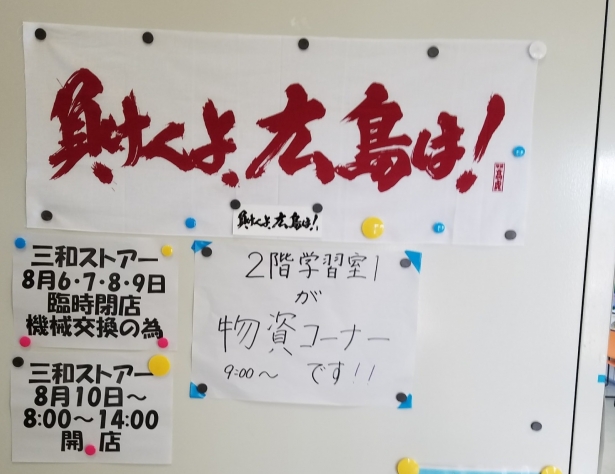 負けんよ、広島は!
負けんよ、広島は!
三和ストアー
8月6・7・8・9日
臨時閉店
機械交換の為
2階学習室1
が
物資コーナー
9:00〜 です!!
三和ストアー
8月10日〜
8:00〜14:00
開 店